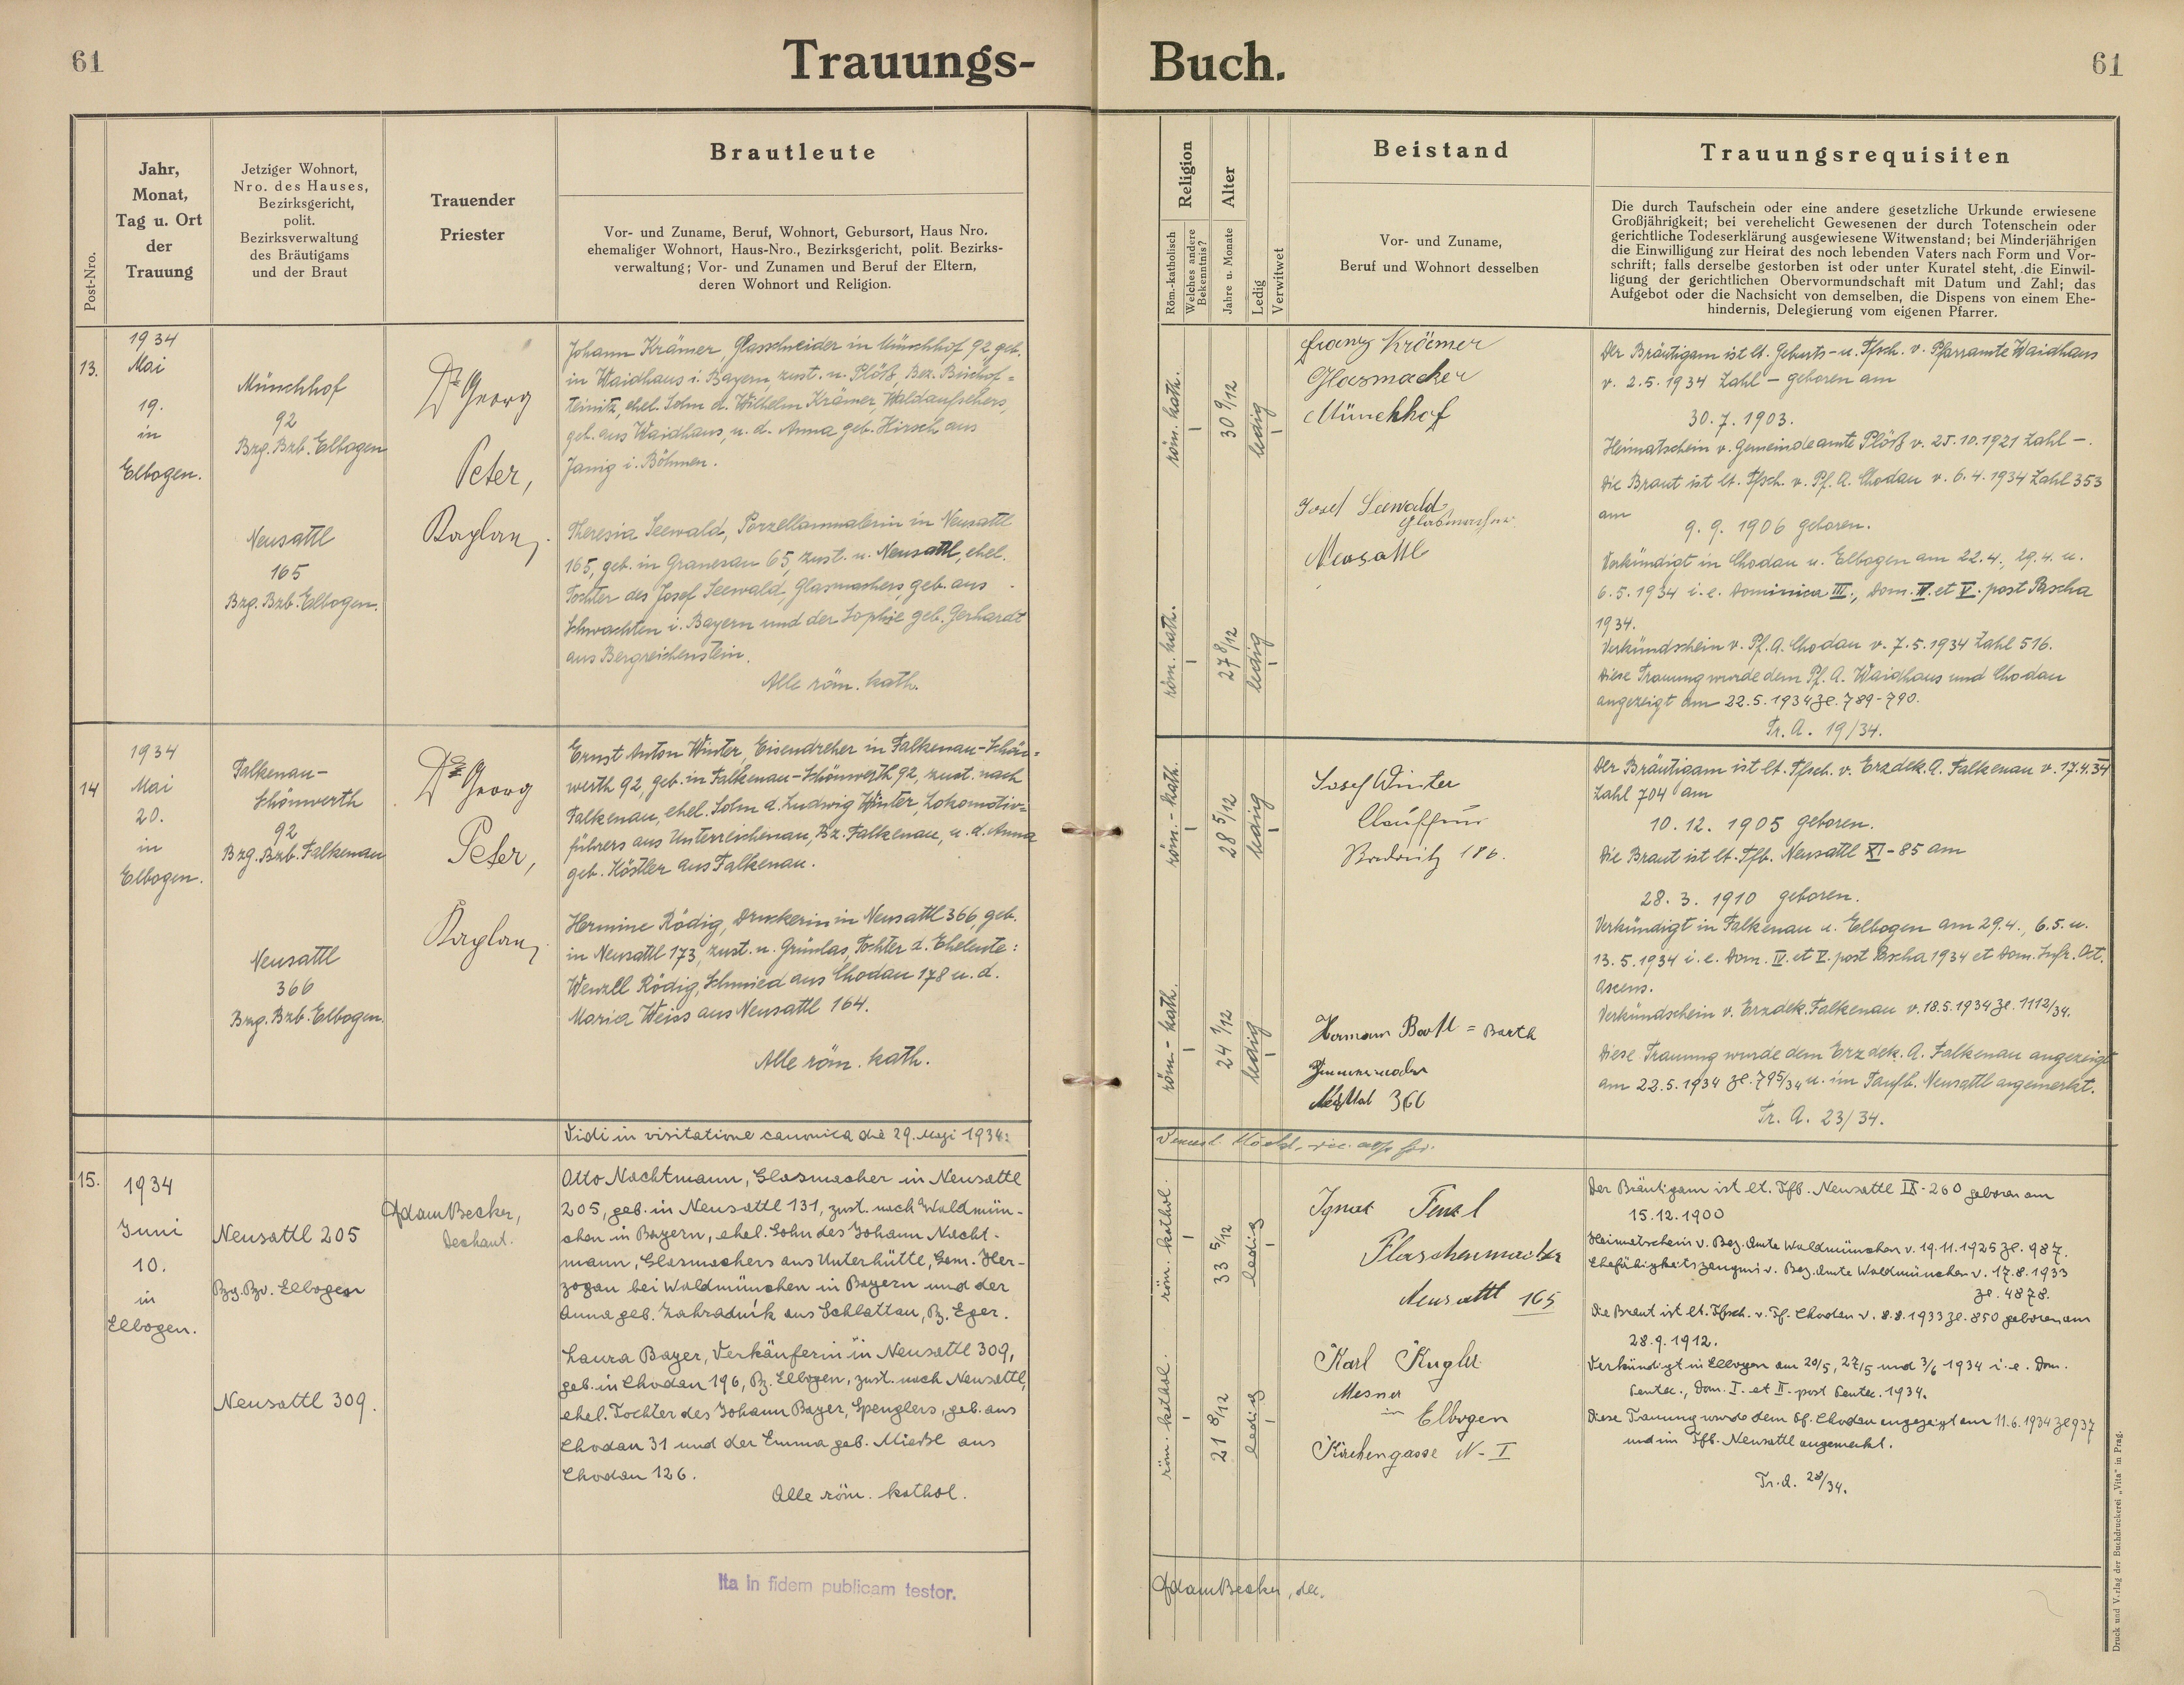 61
Trauungs-
Buch.
61
Post-Nro.
Jahr,
Monat,
Tag u. Ort
der
Trauung
Jetziger Wohnort,
Nro. des Hauses,
Bezirksgericht,
polit.
Bezirksverwaltung
des Bräutigams
und der Braut
Trauender
Priester
Brautleute
Vor- und Zuname, Beruf, Wohnort, Gebursort, Haus Nro.
ehemaliger Wohnort, Haus-Nro., Bezirksgericht, polit. Bezirks-
verwaltung; Vor- und Zunamen und Beruf der Eltern,
deren Wohnort und Religion.
Religion
Röm.-katholisch
Welches andere
Bekenntnis?
Alter
Jahre u. Monate
Ledig
Verwitwet
Beistand
Vor- und Zuname,
Beruf und Wohnort desselben
Trauungsrequisiten
Die durch Taufschein oder eine andere gesetzliche Urkunde erwiesene
Großjährigkeit; bei verehelicht Gewesenen der durch Totenschein oder
gerichtliche Todeserklärung ausgewiesene Witwenstand; bei Minderjährigen
die Einwilligung zur Heirat des noch lebenden Vaters nach Form und Vor-
schrift; falls derselbe gestorben ist oder unter Kuratel steht, die Einwil-
ligung der gerichtlichen Obervormundschaft mit Datum und Zahl; das
Aufgebot oder die Nachsicht von demselben, die Dispens von einem Ehe-
hindernis, Delegierung vom eigenen Pfarrer.
13.
1934
Mai
19.
in
Elbogen.
Münchhof
92
Bzg. Bzb. Elbogen
Neusattl
165
Bzg. Bzb. Elbogen.
Dr Georg
Peter,
Kaplan.
Johann Krämer, Glasschneider in Münchhof 92 geb.
in Waidhaus i. Bayern, zust. n. Plöß, Bez. Bischof=
teinitz, ehel. Sohn d. Wilhelm Krämer, Waldaufsehers,
geb. aus Waidhaus, u. d. Anna geb. Hirsch aus
i. Böhmen.
Theresia Seewald, Porzellanmalerin in Neusattl
165, geb. in Granesau 65, zust. n. Neusattl, ehel.
Tochter des Josef Seewald, Glasmachers, geb. aus
i. Bayern und der Sophie geb. Gerhardt
aus Bergreichenstein.
Alle röm. kath.
röm. kath.
30 9/12
ledig
röm. kath.
27 8/12
ledig
Franz Krämer
Glasmacher
Münchhof
Josef Seewald,
Glasmacher
Neusattl
Der Bräutigam ist lt. Geburts- u. Tfsch. v. Pfarramte Waidhaus
v. 2.5.1934 Zahl – geboren am
30.7.1903.
Heimatschein v. Gemeindeamte Plöß v. 25.10.1921 Zahl –.
Die Braut ist lt. Tfsch. v. Pf. A. Chodau v. 6.4.1934 Zahl 353
am
9.9.1906 geboren.
Verkündigt in Chodau u. Elbogen am 22.4., 29.4. u.
6.5.1934 i. e. Dominica III., Dom. IV. et V. post Pascha
1934.
Verkündschein v. Pf. A. Chodau v. 7.5.1934 Zahl 516.
Diese Trauung wurde dem Pf. A. Waidhaus und Chodau
angezeigt am 22.5.1934 Zl. 789-790.
Tr. A. 19/34.
14
1934
Mai
20.
in
Elbogen.
Falkenau-
Schönwerth
92
Bzg. Bzb. Falkenau
Neusattl
366
Bzg. Bzb. Elbogen.
Dr Georg
Peter,
Kaplan.
Ernst Anton Winter, Eisendreher in Falkenau-Schön=
werth 92, geb. in Falkenau-Schönwerth 92, zust. nach
Falkenau, ehel. Sohn d. Ludwig Winter, Lokomotiv=
führers aus Unterreichenau, Bz. Falkenau, u. d. Anna
geb. Köstler aus Falkenau.
Hermine Rödig, Druckerin in Neusattl 366, geb.
in Neusattl 173, zust. n. Grünlas, Tochter d. Eheleute:
Wenzl Rödig, Schmied aus Chodau 178 u. d.
Maria Weiss aus Neusattl 164.
Alle röm. kath.
röm.-kath.
28 5/12
ledig
röm.-kath.
24 1/12
ledig
Josef Winter
Chauffeur
186.
Hermann = Barth
366
Der Bräutigam ist lt. Tfsch. v. Erzdek. A. Falkenau v. 17.4.34
Zahl 704 am
10.12.1905 geboren.
Die Braut ist lt. Tfb. Neusattl XI-85 am
28.3.1910 geboren.
Verkündigt in Falkenau u. Elbogen am 29.4., 6.5. u.
13.5.1934 i. e. Dom. IV. et V. post Pascha 1934 et Dom. Infr. Oct.
Ascens.
Verkündschein v. Erzdek. Falkenau v. 18.5.1934 Zl. 1112/34.
Diese Trauung wurde dem Erzdek. A. Falkenau angezeigt
am 22.5.1934 Zl. 795/34 u. im Taufb. Neusattl angemerkt.
Tr. A. 23/34.
Vidi in visitatione canonica die 29. Maji 1934:
15.
1934
Juni
10.
in
Elbogen.
Neusattl 205
Bzg. Bzv. Elbogen
Neusattl 309.
Adam Becker,
Dechant.
Otto Nachtmann, Glasmacher in Neusattl
205, geb. in Neusattl 131, zust. nach Waldmün-
chen in Bayern, ehel. Sohn des Johann Nacht-
mann, Glasmachers aus Unterhütte, Gem. Her-
zogau bei Waldmünchen in Bayern und der
Anna geb. Zahradník aus Schlattau, Bz. Eger.
Laura Bayer, Verkäuferin in Neusattl 309,
geb. in Chodau 196, Bz. Elbogen, zust. nach Neusattl,
ehel. Tochter des Johann Bayer, Spenglers, geb. aus
Chodau 31 und der Emma geb. aus
Chodau 126.
Alle röm. kathol.
röm. kathol.
33 5/12
ledig
röm. kathol.
21 8/12
ledig
Ignaz
Flaschenmacher
Neusattl 165
Karl Kugler
Mesner
in
Elbogen
Kirchengasse N-I
Der Bräutigam ist lt. Tfb. Neusattl IX-260 geboren am
15.12.1900
Heimatschein v. Bez. Amte Waldmünchen v. 19.11.1925 Zl. 987.
Ehefähigkeitszeugnis v. Bez. Amte Waldmünchen v. 17.8.1933
Zl. 4878.
Die Braut ist lt. Tfsch. v. Pf. Chodau v. 8.8.1933 Zl. 850 geboren am
28.9.1912.
Verkündigt in Elbogen am 20/5, 27/5 und 3/6 1934 i. e. Dom.
Pentec., Dom. I. et II. post Pentec. 1934.
Diese Trauung wurde dem Pf. Chodau angezeigt am 11.6.1934 Zl 937
und im Tfb. Neusattl angemerkt.
Tr. A. 28/34.
Ita in fidem publicam testor.
Adam Becker, dec.
Druck und Verlag der Buchdruckerei „Vita" in Prag.